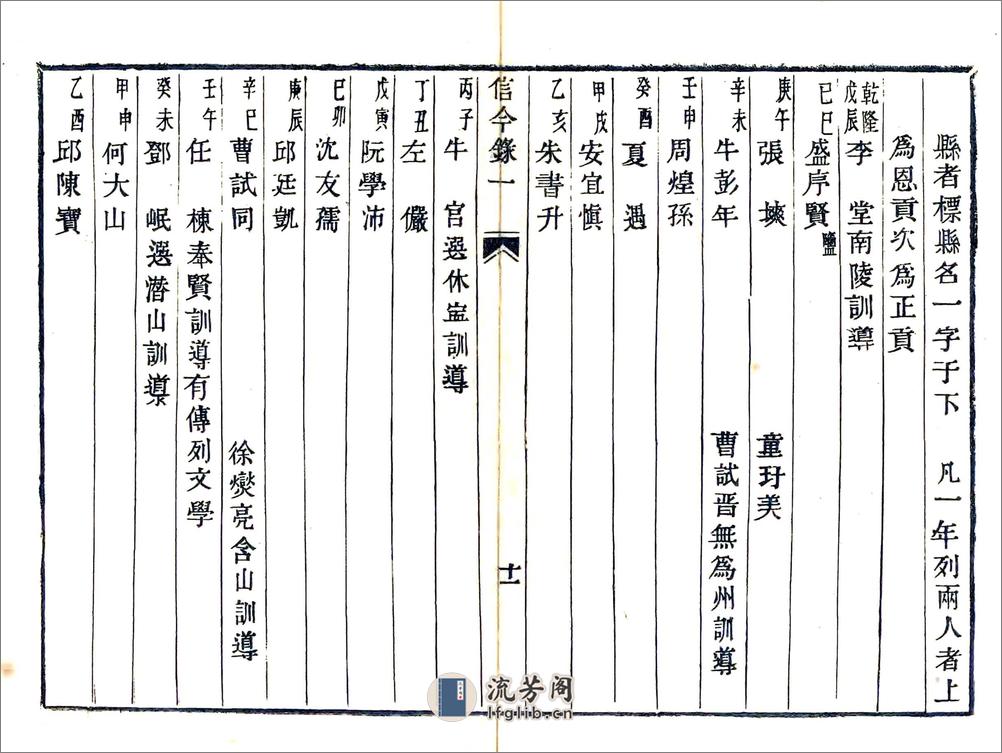 縣者標縣名一字于下　凡一年列兩人者上
爲恩貢次爲正貢
乾隆戊辰李　堂南陵訓導
己巳盛序賢鹽
庚午張　煐　童玗美
辛未牛彭年　曹試晋無爲州訓導
壬申周煌孫
癸酉夏　遇
甲戌安宜愼
乙亥朱書升
信今錄一　十一
丙子牛　官選休寍訓導
丁丑左　儼
戊寅阮學沛
巳卯沈友孺
庚辰邱廷凱
辛巳曹試同　徐爕亮含山訓導
壬午任　棟奉賢訓導有傳列文學
癸未鄧　岷選潛山訓導
甲申何大山
乙酉邱陳寶
流芳阁
lfglib.cn